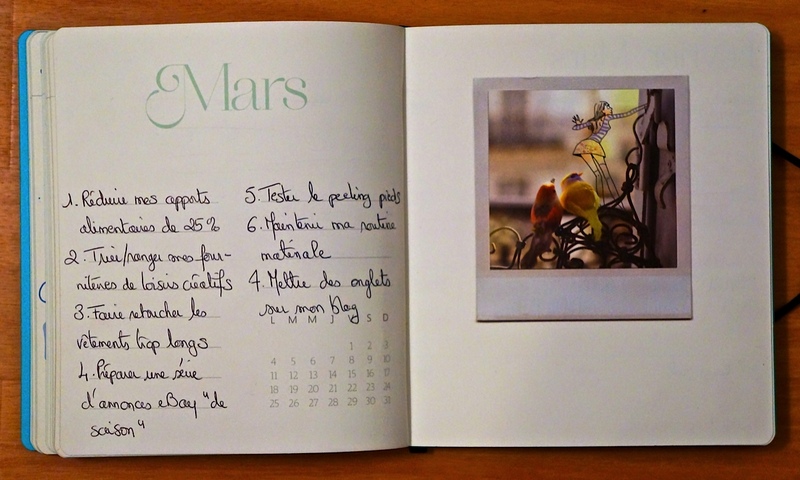 Mars
1. Réduire mes apports
alimentaires de 25%
2. Trier/ranger mes four-
nitures de loisirs créatifs
3. Faire retoucher les
vêtements trop longs
4. Préparer une série
d'annonces eBay "de
saison"
5. Tester le peeling pieds
6. Maintenir ma routine
matinale
4. Mettre des onglets
sur mon blog
L M M J V S D
1 2 3
4 5 6 7 8 9 10
11 12 13 14 15 16 17
18 19 20 21 22 23 24
25 26 27 28 29 30 31